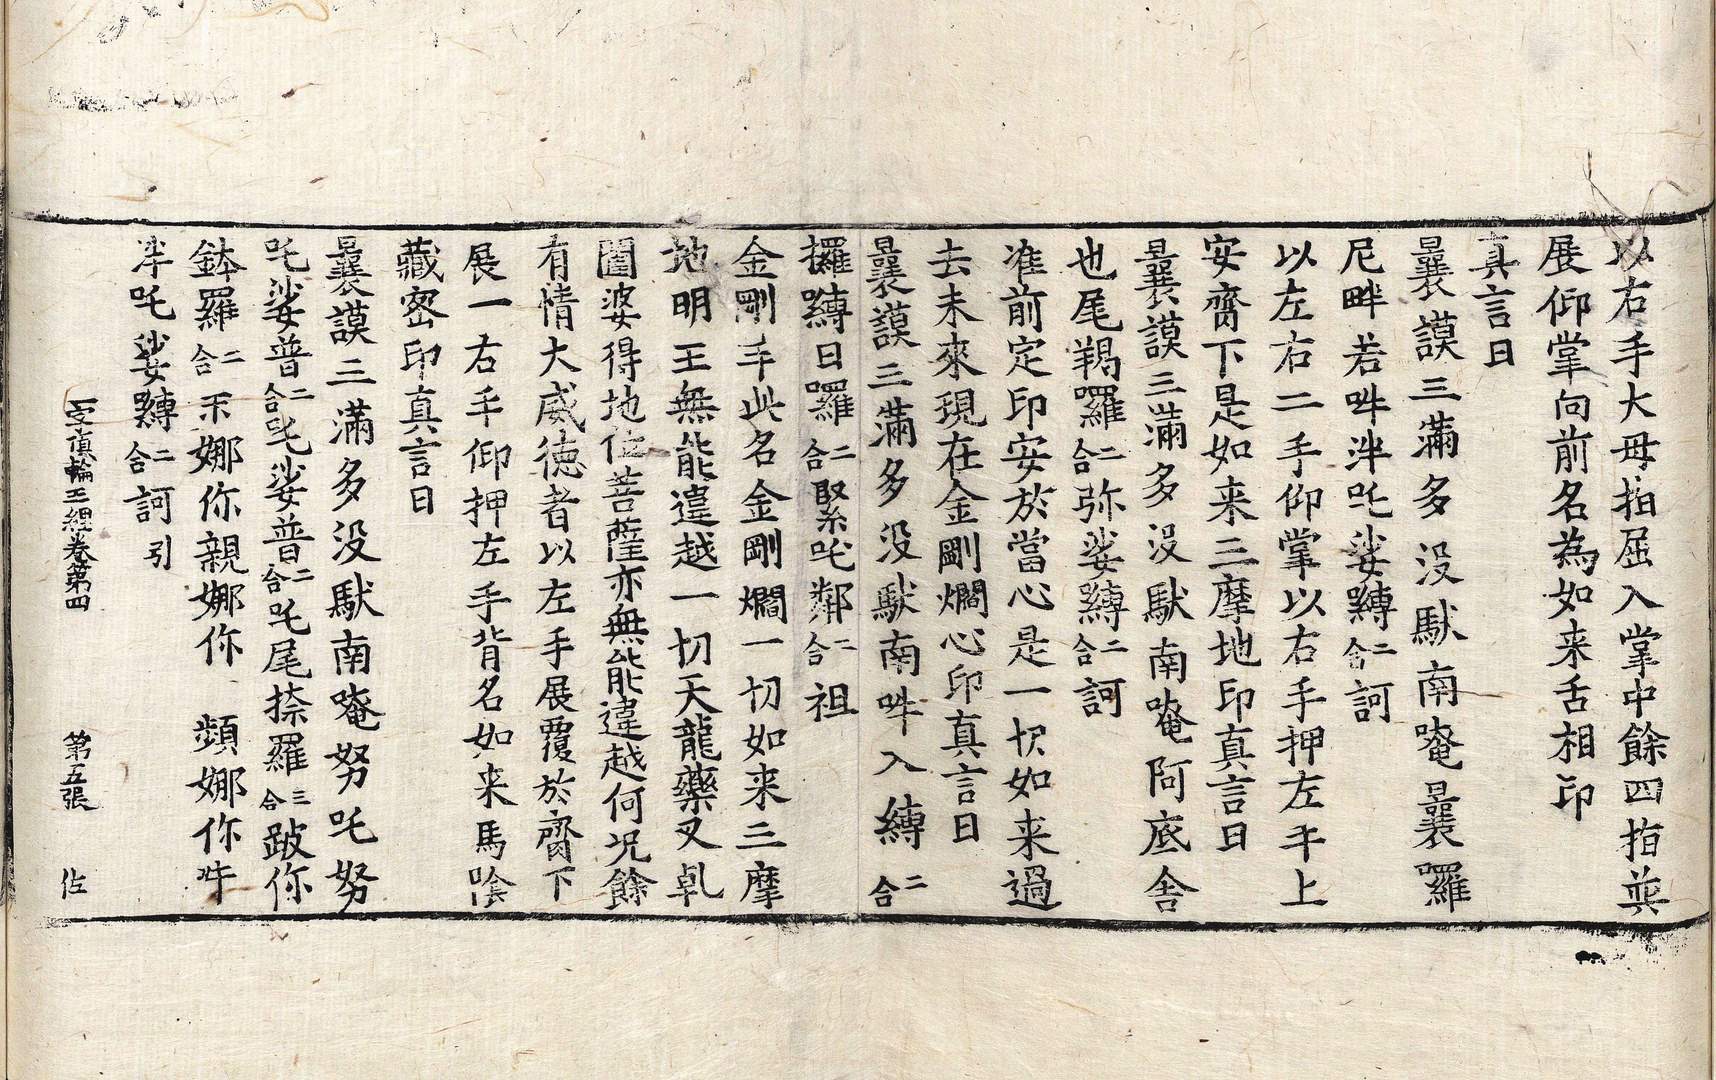 以右手大母指屈入掌中餘四指並
展仰掌向前名為如来舌相印
真言曰
曩謨三滿多没馱南唵曩囉
尼畔若吽泮吒娑嚩二合訶
以左右二手仰掌以右手押左手上
安齊下是如来三摩地印真言曰
曩謨三滿多没馱南唵阿底舍
也尾羯囉二合弥娑嚩二合訶
准前定印安於當心是一切如来過
去未來現在金剛爓心印真言曰
曩謨三滿多没馱南吽入嚩二合
攞嚩日囉二合緊吒鄰二合祖
金剛手此名金剛爓一切如来三摩
地明王無能違越一切天龍藥叉乹
闥婆得地位菩薩亦無能違越何况餘
有情大威徳者以左手展覆於齊下
展一右手仰押左手背名如来馬陰
藏密印真言曰
曩謨三滿多没馱南唵努吒努
吒娑普二合吒娑普二合吒尾捺羅三合跛你
鉢羅二合底娜你親娜你 頻娜你吽
泮吒娑嚩二合訶引
一字頂輪王經卷第四 第五張 佐